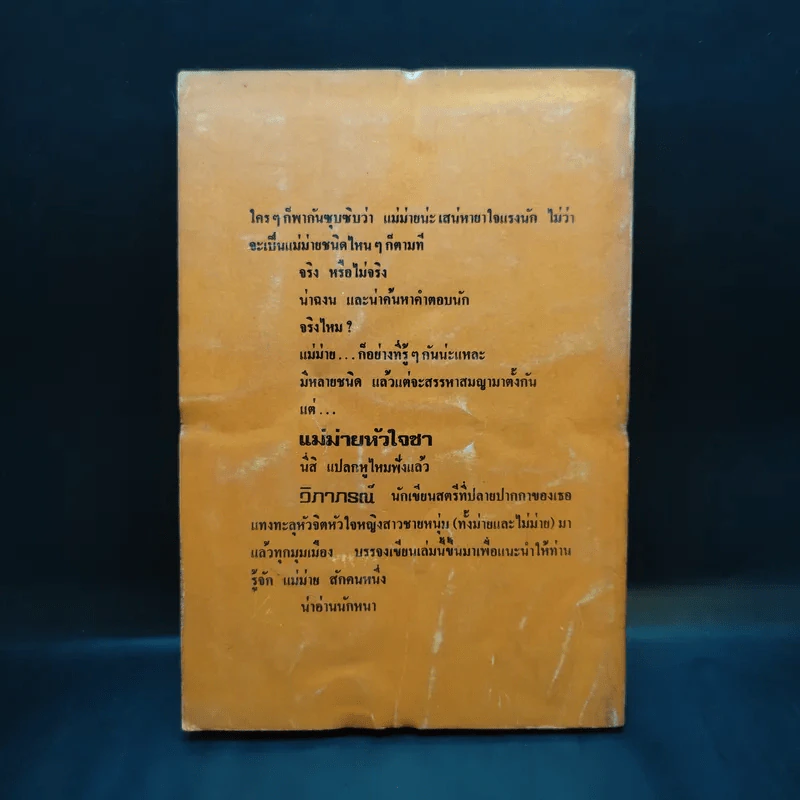 ใคร ๆ ก็พากันซุบซิบว่า แม่ม่ายน่ะ เสน่หายาใจแรงนัก ไม่ว่า
จะเป็นแม่ม่ายชนิดไหน ๆ ก็ตามที
จริง หรือไม่จริง
น่าฉงน และน่าค้นหาคำตอบนัก
จริงไหม ?
แม่ม่าย . . . ก็อย่างที่รู้ ๆ กันน่ะแหละ
มีหลายชนิด แล้วแต่จะสรรหาสมญามาตั้งกัน
แต่ . . .
แม่ม่ายหัวใจชา
นี่สิ แปลกหูไหมฟังแล้ว
วิภาภรณ์ นักเขียนสตรีที่ปลายปากกาของเธอ
แทงทะลุหัวจิตหัวใจหญิงสาวชายหนุ่ม (ทั้งม่ายและไม่ม่าย) มา
แล้วทุกมุมเมือง บรรจงเขียนเล่มนี้ขึ้นมาเพื่อแนะนำให้ท่าน
รู้จัก แม่ม่าย สักคนหนึ่ง
น่าอ่านนักหนา